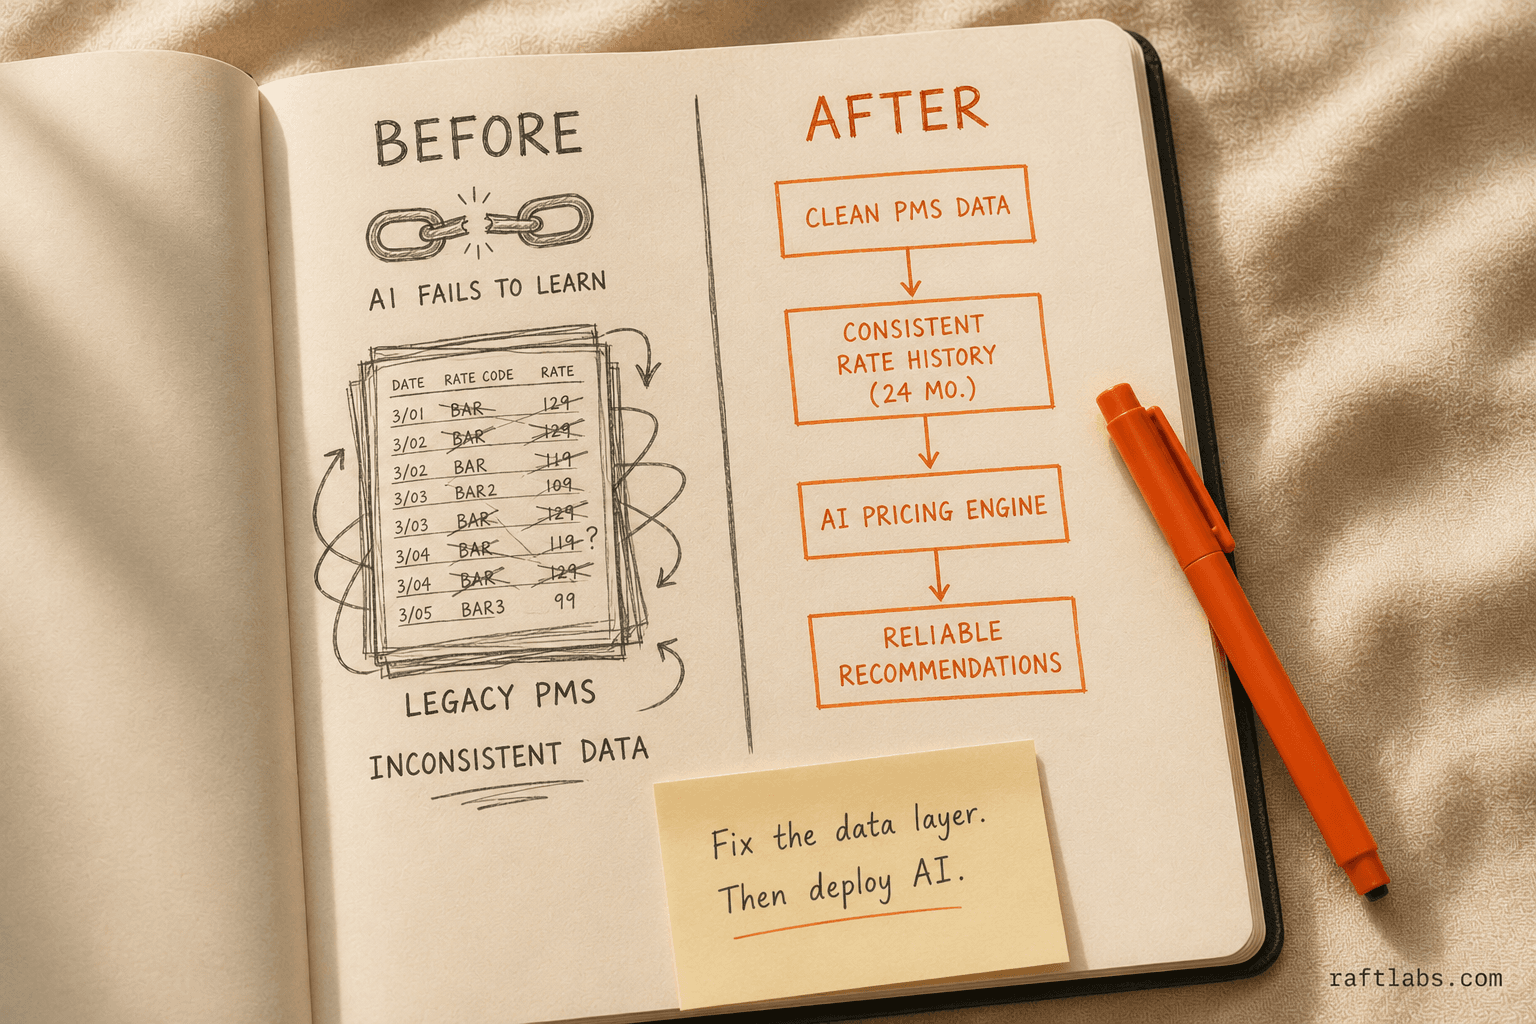 BEFORE
AI FAILS TO LEARN
DATE RATE CODE RATE
3/01 BAR 129
3/02 BAR 129
3/02 BAR 119
3/03 BAR2 109
3/03 BAR 129
3/04 BAR 119 ?
3/04 BAR 129
3/05 BAR3 99
LEGACY PMS
INCONSISTENT DATA
AFTER
CLEAN PMS DATA
CONSISTENT
RATE HISTORY
(24 MO.)
AI PRICING ENGINE
RELIABLE
RECOMMENDATIONS
Fix the data layer.
Then deploy AI.
raftlabs.com